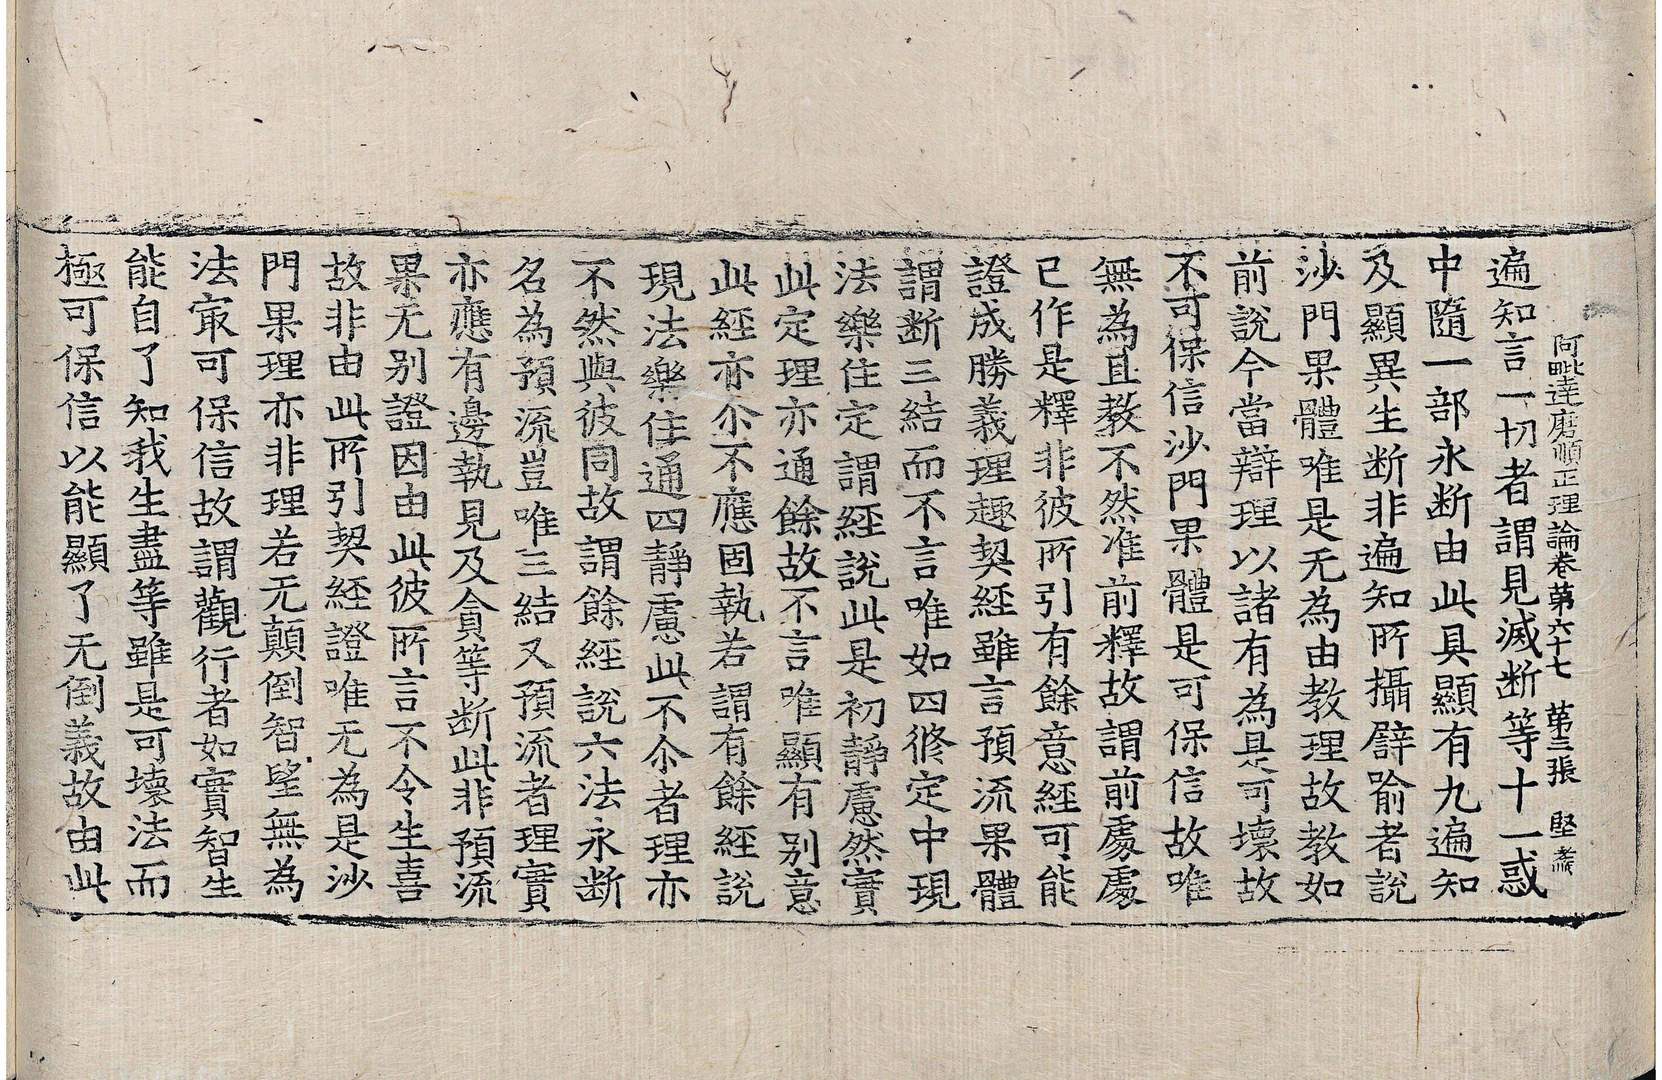 阿毗達磨順正理論卷第六十七 第三張 堅
遍知言一切者謂見滅断等十一惑
中隨一部永断由此具顯有九遍知
及顯異生断非遍知所攝譬喻者說
沙門果體唯是无為由教理故教如
前說今當辯理以諸有為是可壞故
不可保信沙門果體是可保信故唯
無為且教不然准前釋故謂前處處
已作是釋非彼所引有餘意經可能
證成勝義理趣契經雖言預流果體
謂断三結而不言唯如四修定中現
法樂住定謂經說此是初靜慮然實
此定理亦通餘故不言唯顯有别意
此經亦尒不應固執若謂有餘經說
現法樂住通四靜慮此不尒者理亦
不然與彼同故謂餘經說六法永断
名為預流豈唯三結又預流者理實
亦應有邊執見及貪等断此非預流
果无别證因由此彼所言不令生喜
故非由此所引契經證唯无為是沙
門果理亦非理若无顛倒智望無為
法㝡可保信故謂觀行者如實智生
能自了知我生盡等雖是可壞法而
極可保信以能顯了无倒義故由此